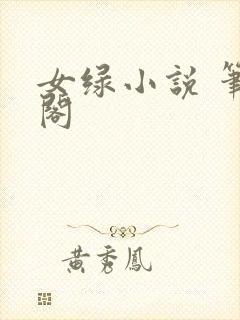 女绿小説 筆
閣
黃秀鳳